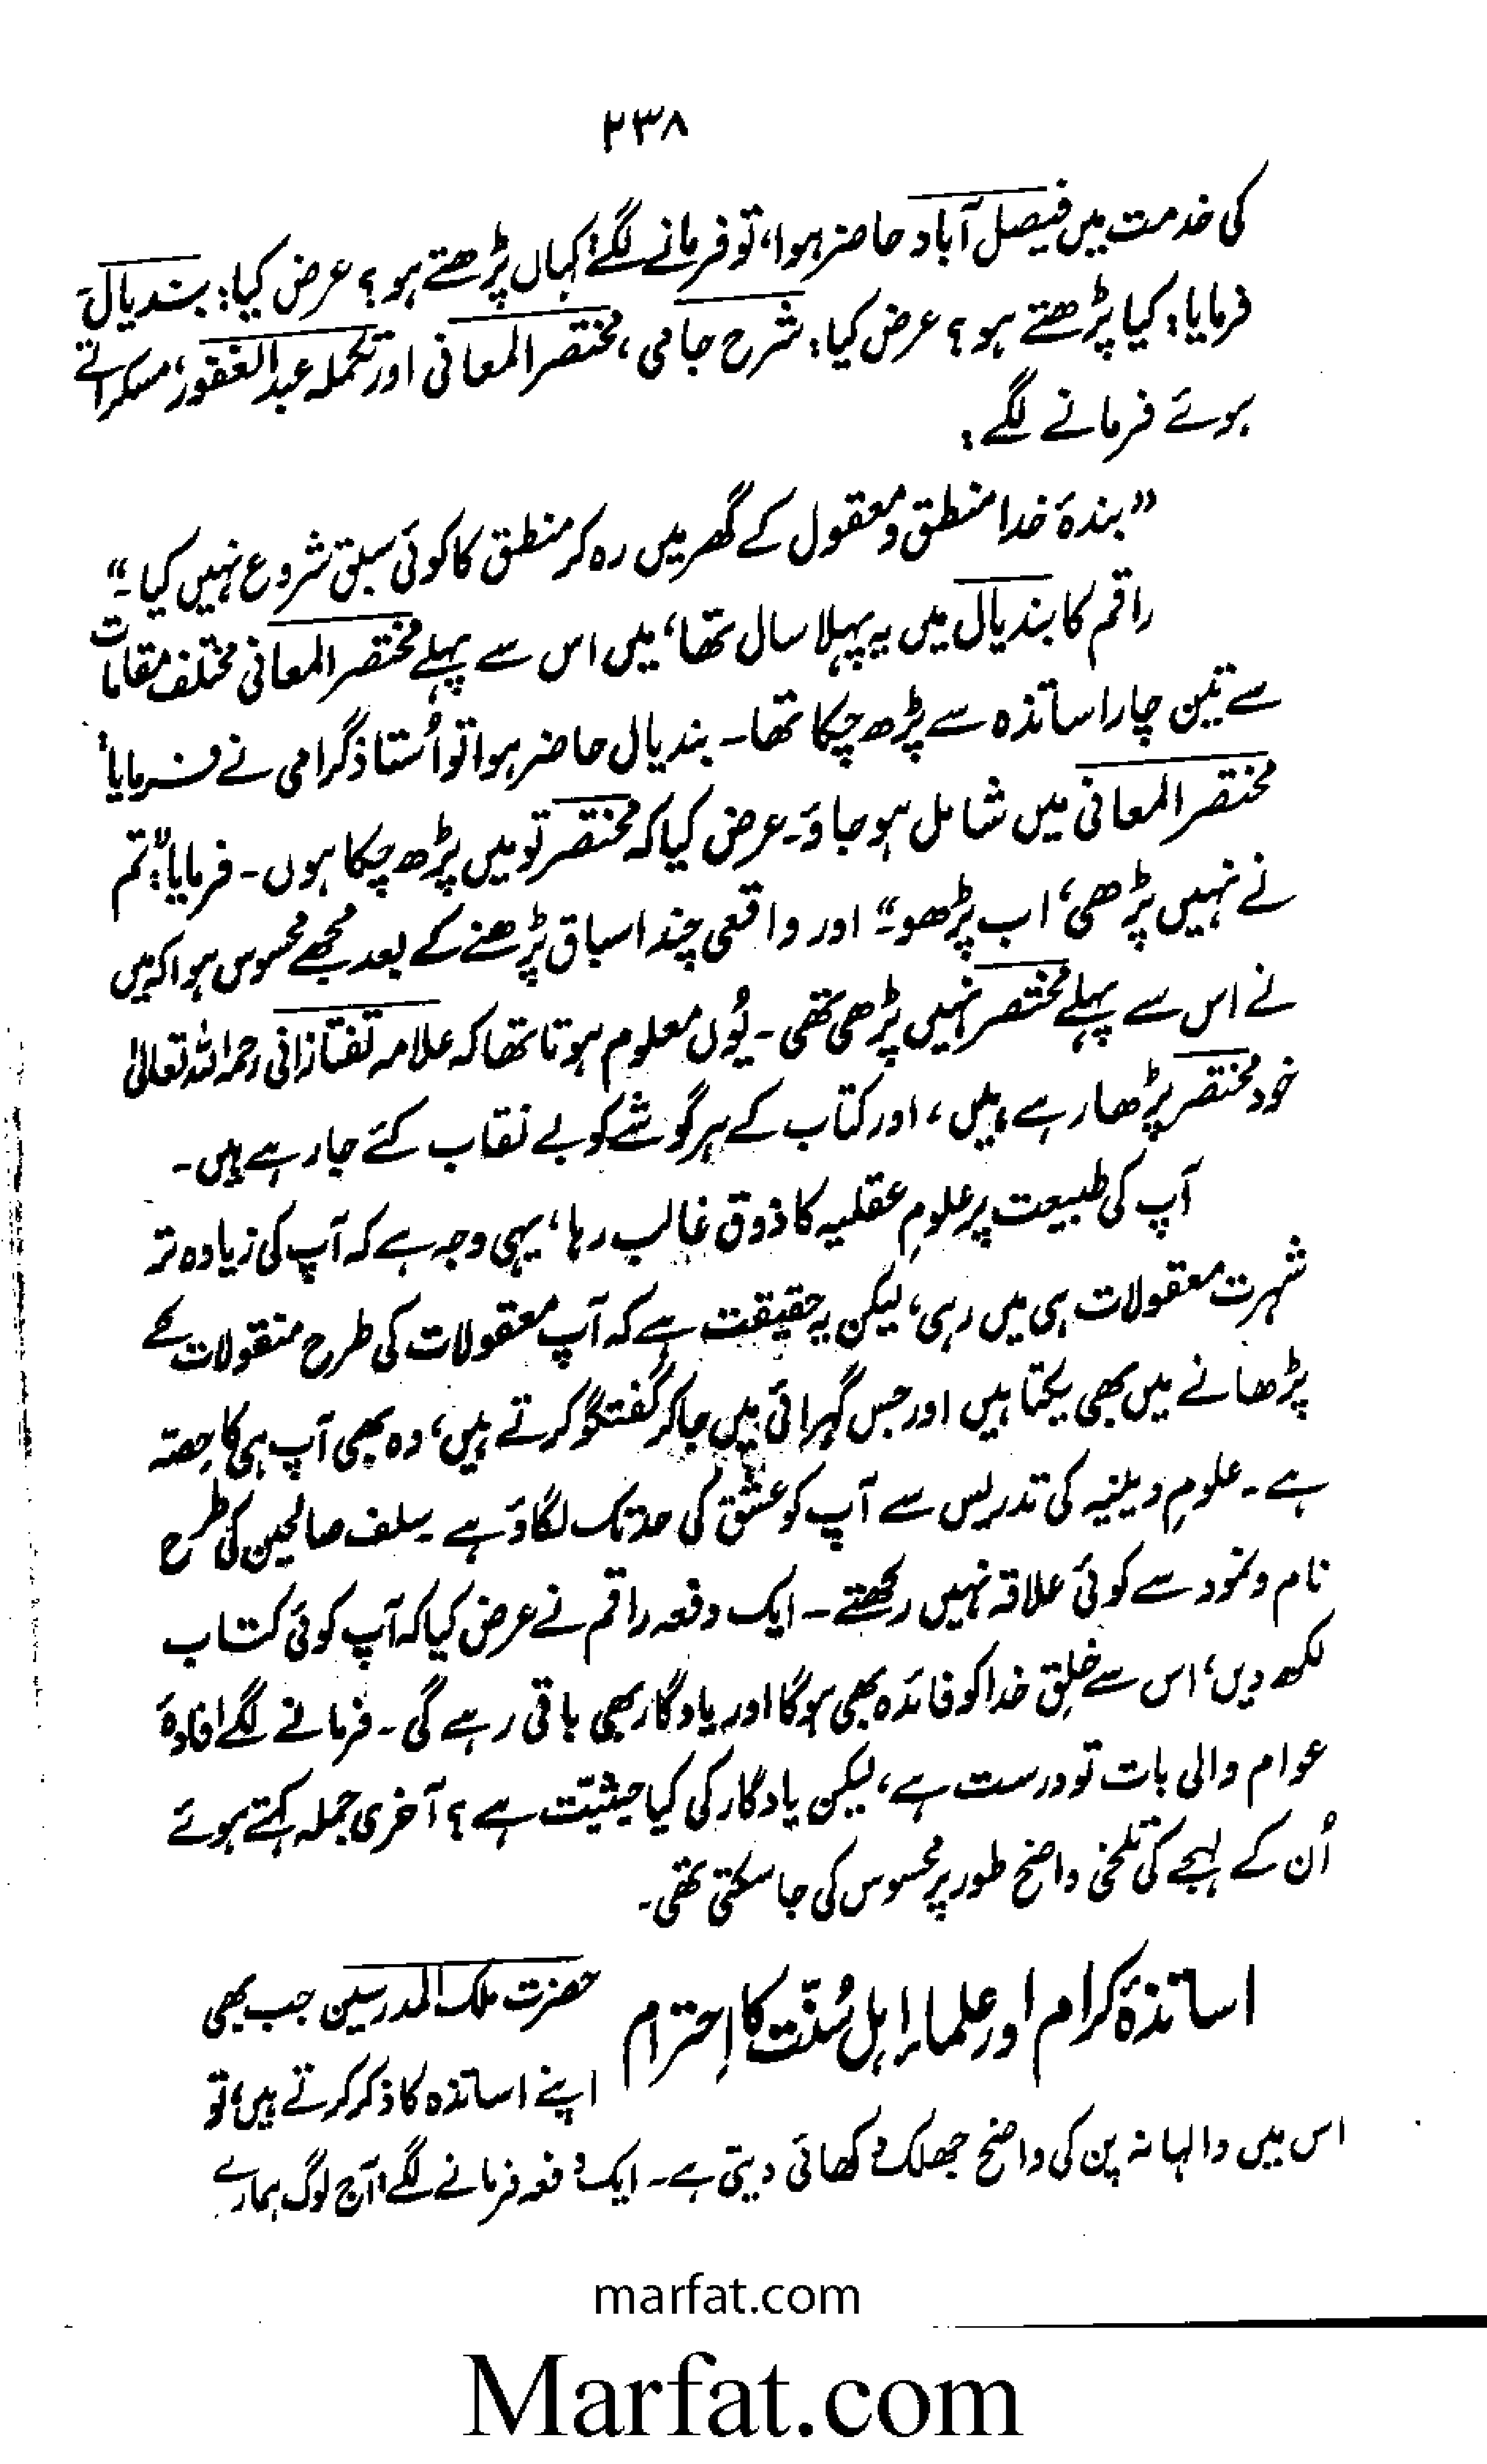 ۲۳۸
کی خدمت میں فیصل آباد حاضر ہوا، تو فرمانے لگے: کہاں پڑھتے ہو؟ عرض کیا: بندیال،
فرمایا: کیا پڑھتے ہو؟ عرض کیا: شرح جامی، مختصر المعانی اور تکملہ عبدالغفور، مسکراتے
ہوئے فرمانے لگے:
”بندۂ خدا منطق و معقول کے گھر میں رہ کر منطق کا کوئی سبق شروع نہیں کیا۔“
راقم کا بندیال میں یہ پہلا سال تھا، میں اس سے پہلے مختصر المعانی مختلف مقامات
سے تین چار اساتذہ سے پڑھ چکا تھا۔ بندیال حاضر ہوا تو اُستاذ گرامی نے فرمایا،
مختصر المعانی میں شامل ہو جاؤ۔ عرض کیا کہ مختصر تو میں پڑھ چکا ہوں۔ فرمایا: ”تم
نے نہیں پڑھی، اب پڑھو۔“ اور واقعی چند اسباق پڑھنے کے بعد مجھے محسوس ہوا کہ میں
نے اس سے پہلے مختصر نہیں پڑھی تھی۔ یُوں معلوم ہوتا تھا کہ علامہ تفتازانی رحمہ اللہ تعالیٰ
خود مختصر پڑھا رہے ہیں، اور کتاب کے ہر گوشے کو بے نقاب کئے جا رہے ہیں۔
آپ کی طبیعت پر علومِ عقلیہ کا ذوق غالب رہا، یہی وجہ ہے کہ آپ کی زیادہ تر
شہرت معقولات ہی میں رہی، لیکن یہ حقیقت ہے کہ آپ معقولات کی طرح منقولات کے
پڑھانے میں بھی یکتا ہیں اور جس گہرائی میں جا کر گفتگو کرتے ہیں، وہ بھی آپ ہی کا حِصّہ
ہے۔ علومِ دینیہ کی تدریس سے آپ کو عشق کی حد تک لگاؤ ہے۔ سلف صالحین کی طرح
نام و نمود سے کوئی علاقہ نہیں رکھتے۔ ایک دفعہ راقم نے عرض کیا کہ آپ کوئی کتاب
لکھ دیں، اس سے خلقِ خدا کو فائدہ بھی ہوگا اور یادگار بھی باقی رہے گی۔ فرمانے لگے افادۂ
عوام والی بات تو درست ہے، لیکن یادگار کی کیا حیثیّت ہے؟ آخری جملہ کہتے ہوئے
اُن کے لہجے کی تلخی واضح طور پر محسوس کی جا سکتی تھی۔
اساتذۂ کرام اور علماءِ اہلِ سُنّت کا اِحترام
حضرت ملک المدرسین جب بھی
اپنے اساتذہ کا ذکر کرتے ہیں، تو
اس میں والہانہ پن کی واضح جھلک دکھائی دیتی ہے۔ ایک دفعہ فرمانے لگے: آج لوگ ہمارے
marfat.com
Marfat.com